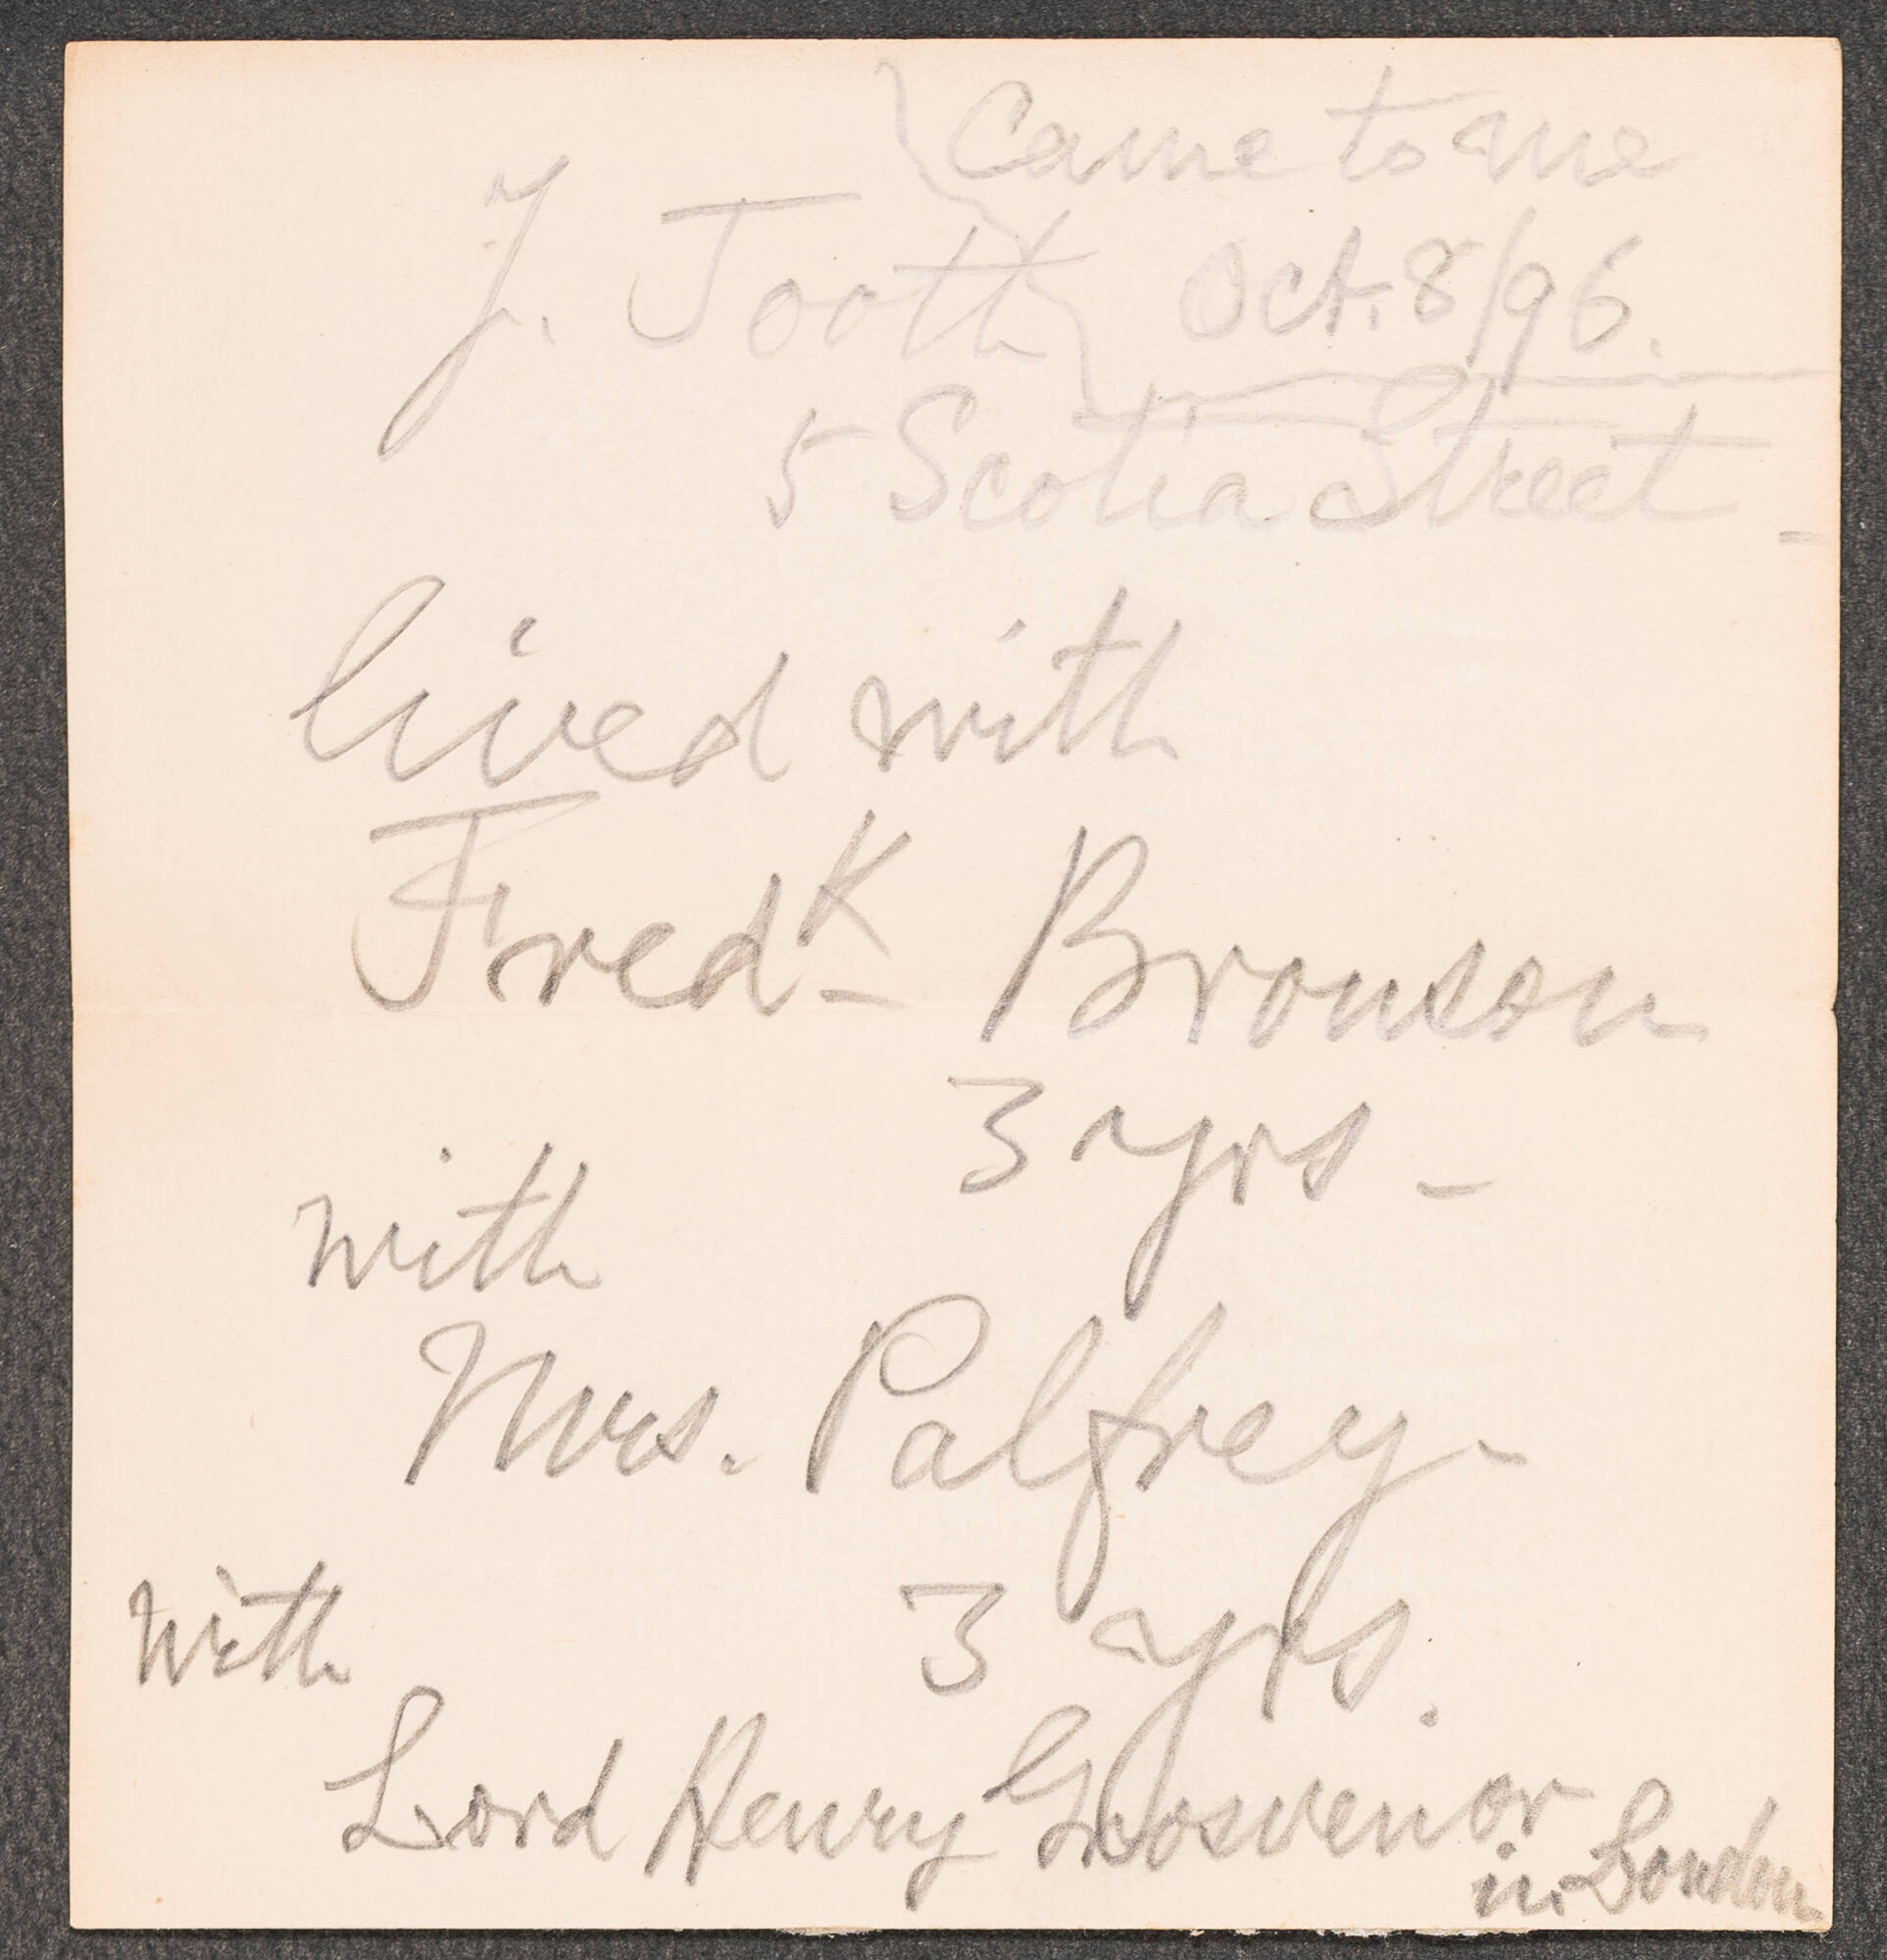 Came to me
J. Tooth Oct. 8/96.
5 Scotia Street -
lived with
Fredk Bronson
3 yrs -
with
Mrs. Palfrey -
with 3 yrs.
Lord Henry Grosvenor
in London